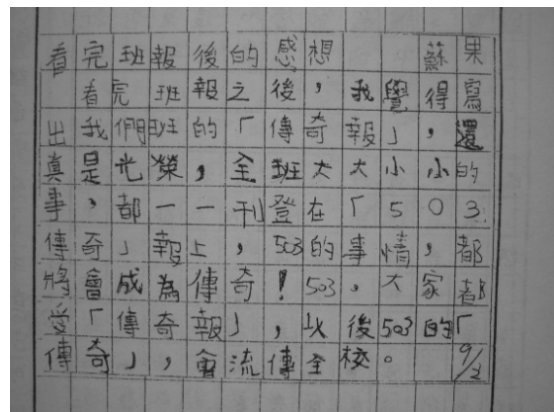 看完班報後的感想 蘇果
看完班報之後，我覺得寫
出我們班的「傳奇報」，還
真是光榮，全班大大小小的
事，都一一刊登在「503
傳奇」報上，503的事情，都
將會成為傳奇！503，大家都
愛「傳奇報」，以後503的「
傳奇」，會流傳全校。 9/2